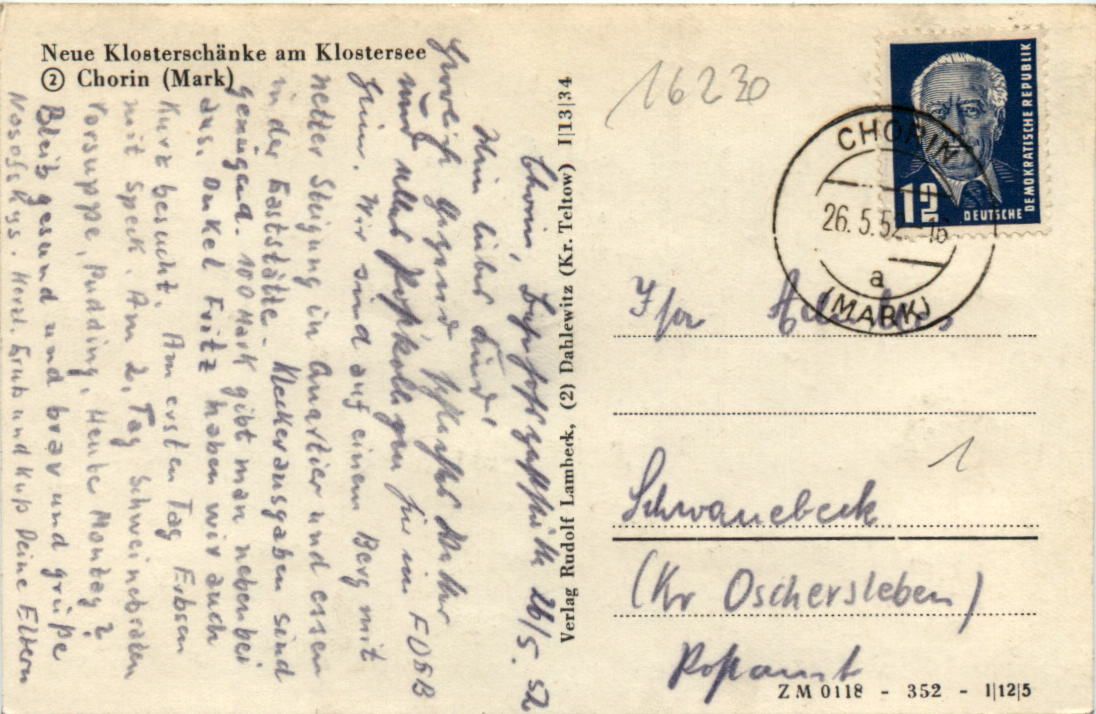 Neue Klosterschänke am Klostersee
② Chorin (Mark)
16230
DEUTSCHE DEMOKRATISCHE REPUBLIK
12
CHORIN
26.5.52 -16
a
(MARK)
Verlag Rudolf Lambeck, (2) Dahlewitz (Kr. Teltow) I|13|34
Chorin, 26/5. 52
Mein liebes Kind!
für im FDGB
Heim. Wir sind auf einem Berg mit
netter Steigung in Quartier und essen
in der Gaststätte. Meckerausgaben sind
genügend. 100 Mark gibt man nebenbei
aus. Onkel Fritz haben wir auch
Kurz besucht. Am ersten Tag Erbsen
mit Speck. Am 2. Tag Schweinebraten
Vorsuppe, Pudding, Heute Montag?
Bleib gesund und brav und grüße
Herzl. Gruß und Kuß Deine Eltern
1
Schwanebeck
(Kr Oschersleben)
Postamt
ZM 0118 - 352 - I|12|5